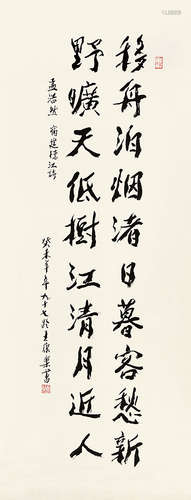 移舟泊烟渚日暮客愁新
野曠天低樹江清月近人
孟浩然 宿建德江詩
癸未年九十七於書